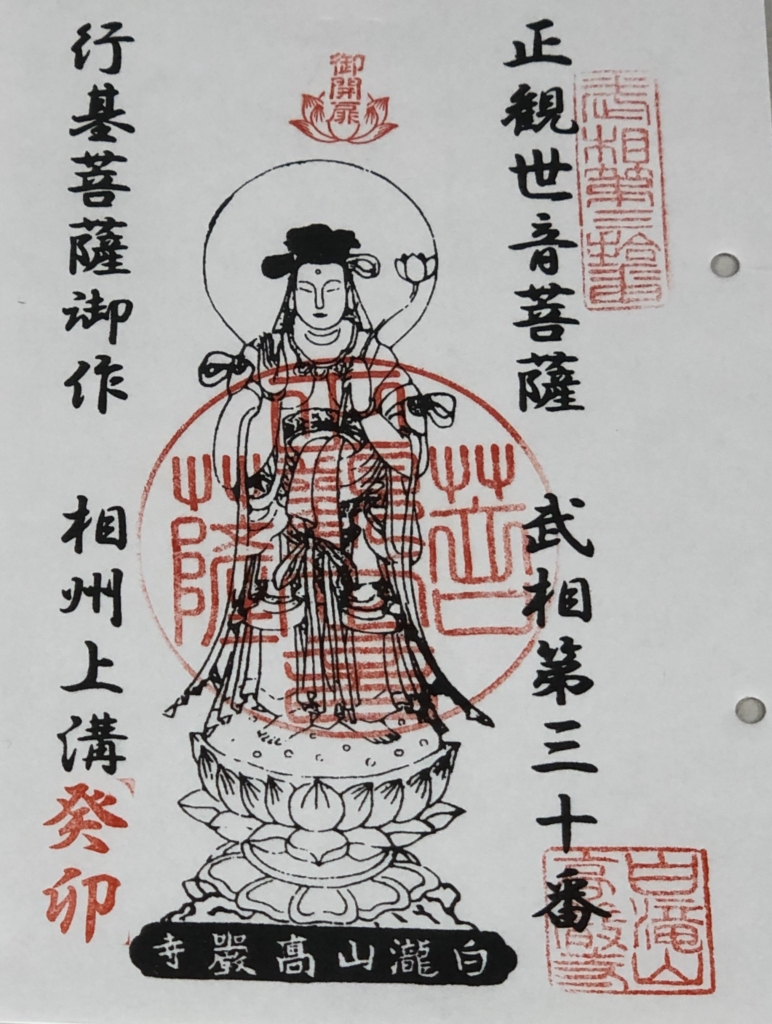 武相第三拾番
正觀世音菩薩
武相第三十番
御開扉
行基菩薩御作
相州上溝
癸卯
白瀧山高嚴寺
白滝山
高巌寺